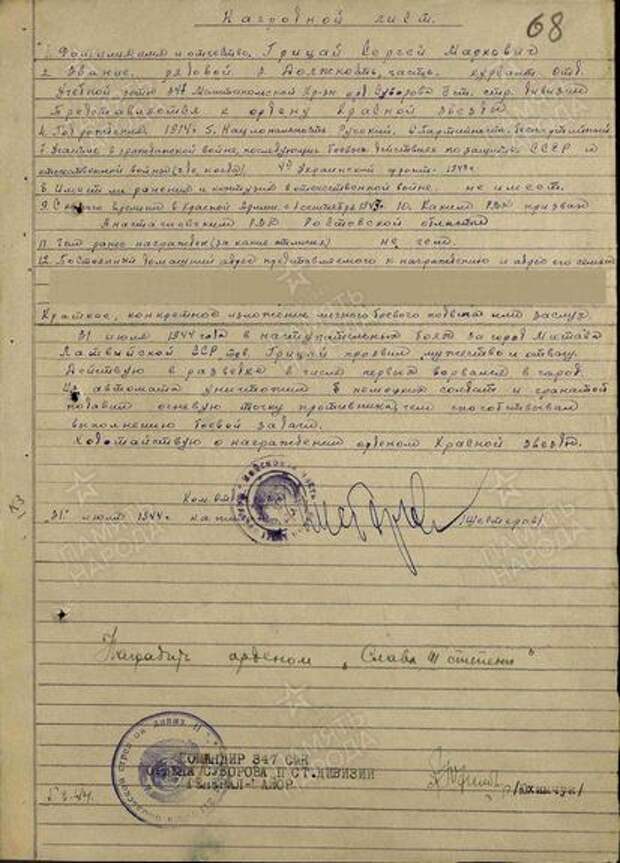 Наградной лист.
68
1. Фамилия имя и отчество. Грицай Сергей Маркович
2. Звание. рядовой 3. Должность, часть. курсант отд.
Учебной роты 347 Мелитопольской Кр-зн. орд. Суворова II ст. стр. дивизии
Представляется к ордену Красной звезды
4. Год рождения 1914 г. 5. Национальность Русский. 6. Партийность. беспартийный
7. Участие в гражданской войне, последующих боевых действиях по защите СССР и
отечественной войны (где, когда). 4й Украинский фронт. 1943 г.
8. Имеет ли ранения и контузии в отечественной войне. не имеет.
9. С какого времени в Красной армии. с сентября 1943 г. 10. Каким РВК призван
Анастасиевским РВК Ростовской области
11. Чем ранее награжден (за какие отличия) не чем.
12. Постоянный домашний адрес представляемого к награждению и адрес его семьи
Краткое, конкретное изложение личного боевого подвига или заслуг.
31 июля 1944 года в наступательных боях за город Митава
Латвийской ССР, тов. Грицай проявил мужество и отвагу.
Действуя в разведке в числе первых ворвался в город.
Из автомата уничтожил 8 немецких солдат и гранатой
подавил огневую точку противника, чем способствовал
выполнению боевой задачи.
Ходотайствую о награждении орденом Красной звезды.
31 июля 1944 г.
/Шестеров/
Наградить орденом „Слава III степени"
КОМАНДИР 347 СКМ
ОРДЕНА СУВОРОВА II СТ. ДИВИЗИИ
ГЕНЕРАЛ-МАЙОР
/Юхимчук/
ПАМЯТЬ
НАРОДА